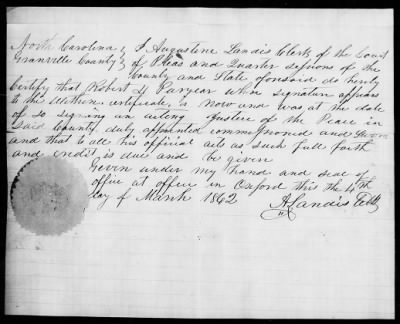 North Carolina } I Augustine Landis Clerk of the Court
Granville County } of Pleas and Quarter sessions of the
County and State foresaid do hereby
Certify that Robert H Puryear whose signature appears
to the Within certificate, is now and was at the date
of so signing an acting Justice of the Peace in
Said County duly appointed commissioned and Sworn
and that to all his official acts as such full faith
and credit is due and be given
Given under my hand and seal of
office at office in Oxford this the 4th
day of March 1862 A Landis Clk